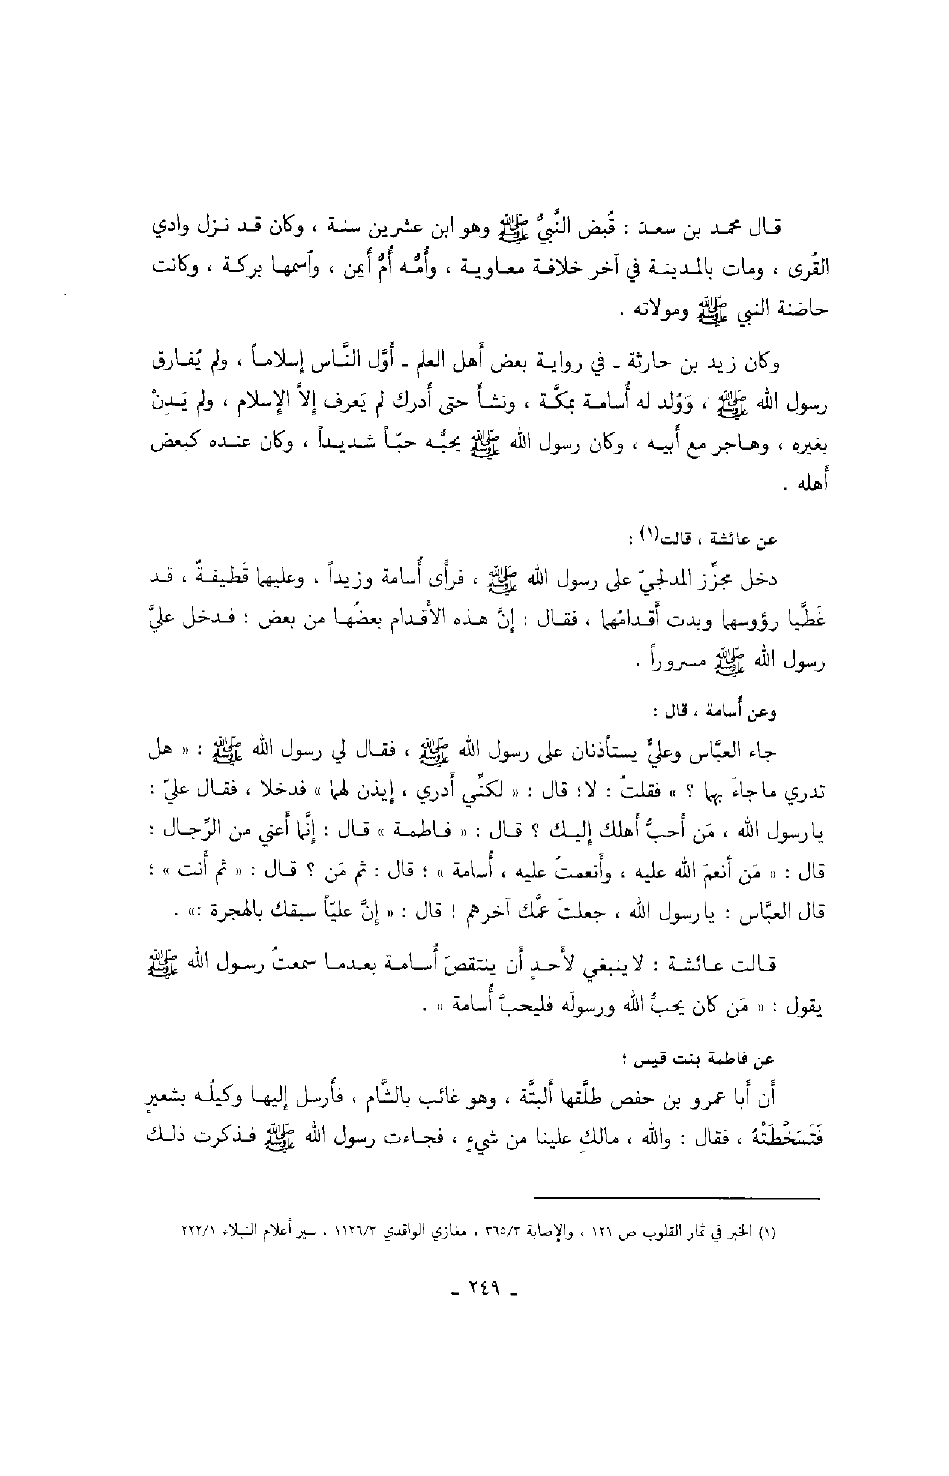 قال محمد بن سعد : قُبض النَّبيُّ ﷺ وهو ابن عشرين سنة ، وكان قد نزل وادي
القُرى ، ومات بالمدينة في آخر خلافة معاوية ، وأُمُّه أُمُّ أيمن ، وٱسمها بركة ، وكانت
حاضنة النبي ﷺ ومولاته .
وكان زيد بن حارثة ـ في رواية بعض أهل العلم ـ أوَّل النَّاس إسلاماً ، ولم يُفارق
رسول الله ﷺ ، وَوُلد له أُسامة بمكَّة ، ونشأ حتى أدرك لم يَعرف إلاَّ الإسلام ، ولم يَدِنْ
بغيره ، وهاجر مع أبيه ، وكان رسول الله ﷺ يحبُّه حبّاً شديداً ، وكان عنده كبعض
أهله .
عن عائشة ، قالت(١) :
دخل مجزِّز المدلجيّ على رسول الله ﷺ ، فرأى أُسامة وزيداً ، وعليها قَطيفةٌ ، قد
غَطَّيا رؤوسها وبدت أقدامُها ، فقال : إنَّ هذه الأقدام بعضُها من بعض ؛ فدخل عليَّ
رسول الله ﷺ مسروراً .
وعن أسامة ، قال :
جاء العبَّاس وعليٌّ يستأذنان على رسول الله ﷺ ، فقال لي رسول الله ﷺ : « هل
تدري ماجاءَ بها ؟ » فقلتُ : لا؛ قال : « لكنِّي أدري ، إيذن لها » فدخلا ، فقال عليّ :
يارسول الله ، مَن أحبُّ أهلك إليك ؟ قال : « فاطمة » قال : إنَّما أعني من الرِّجال :
قال : « مَن أنعمَ الله عليه ، وأنعمتُ عليه ، أُسامة » ؛ قال : ثم مَن ؟ قال : « ثم أنت » ؛
قال العبَّاس : يارسول الله ، جعلتَ عمَّك آخرهم ! قال : « إنَّ عليّاً سبقك بالهجرة :» .
قالت عائشة : لاينبغي لأحدٍ أن ينتقصَ أُسامة بعدما سمعتُ رسول الله ﷺ
يقول : « مَن كان يحبُّ الله ورسولَه فليحبَّ أُسامة » .
عن فاطمة بنت قيس ؛
أن أبا عمرو بن حفص طلَّقها ألبتَّة ، وهو غائب بالشَّام ، فأرسل إليها وكيلُه بشعيرٍ
فَتَسَخَّطَتْهُ ، فقال : والله ، مالكِ علينا من شيءٍ ، فجاءت رسول الله ﷺ فذكرت ذلك
(١) الخبر في ثمار القلوب ص ١٢١ ، والإصابة ٣٦٥/٣ ، مغازي الواقدي ١١٢٦/٣ ، سير أعلام النبلاء ٢٢٢/١
ـ ٢٤٩ ـ